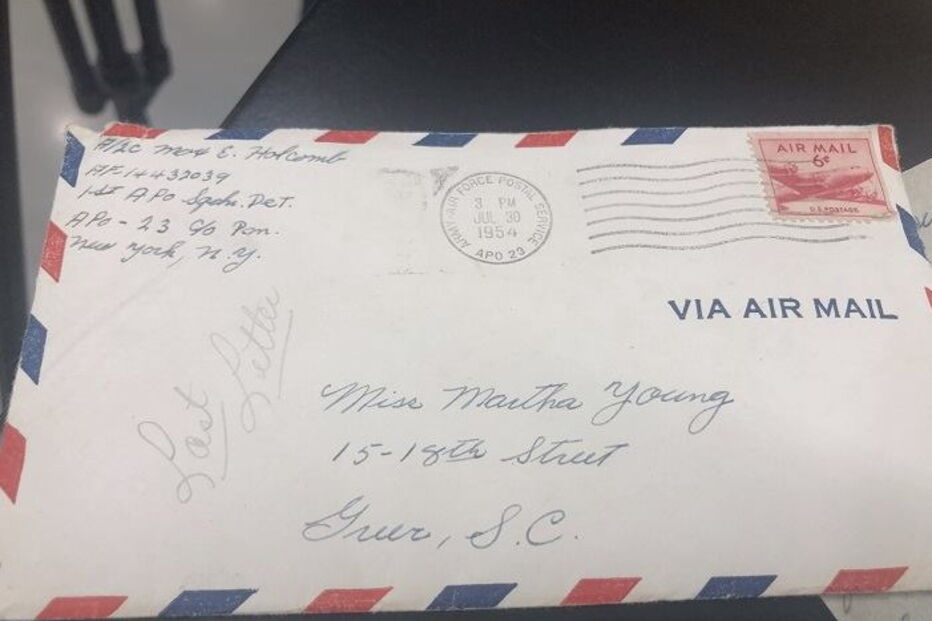 A/2c Max E. Holcomb
AF 14432039
1st APo Spdn. Det.
APo - 23 C/o Pm.
New York, N.Y.
ARMY-AIR FORCE POSTAL SERVICE
3 PM
JUL 30
1954
APO 23
AIR MAIL
6¢
U.S. POSTAGE
VIA AIR MAIL
Last Letter
Miss Martha Young
15-18th Street
Greer, S.C.